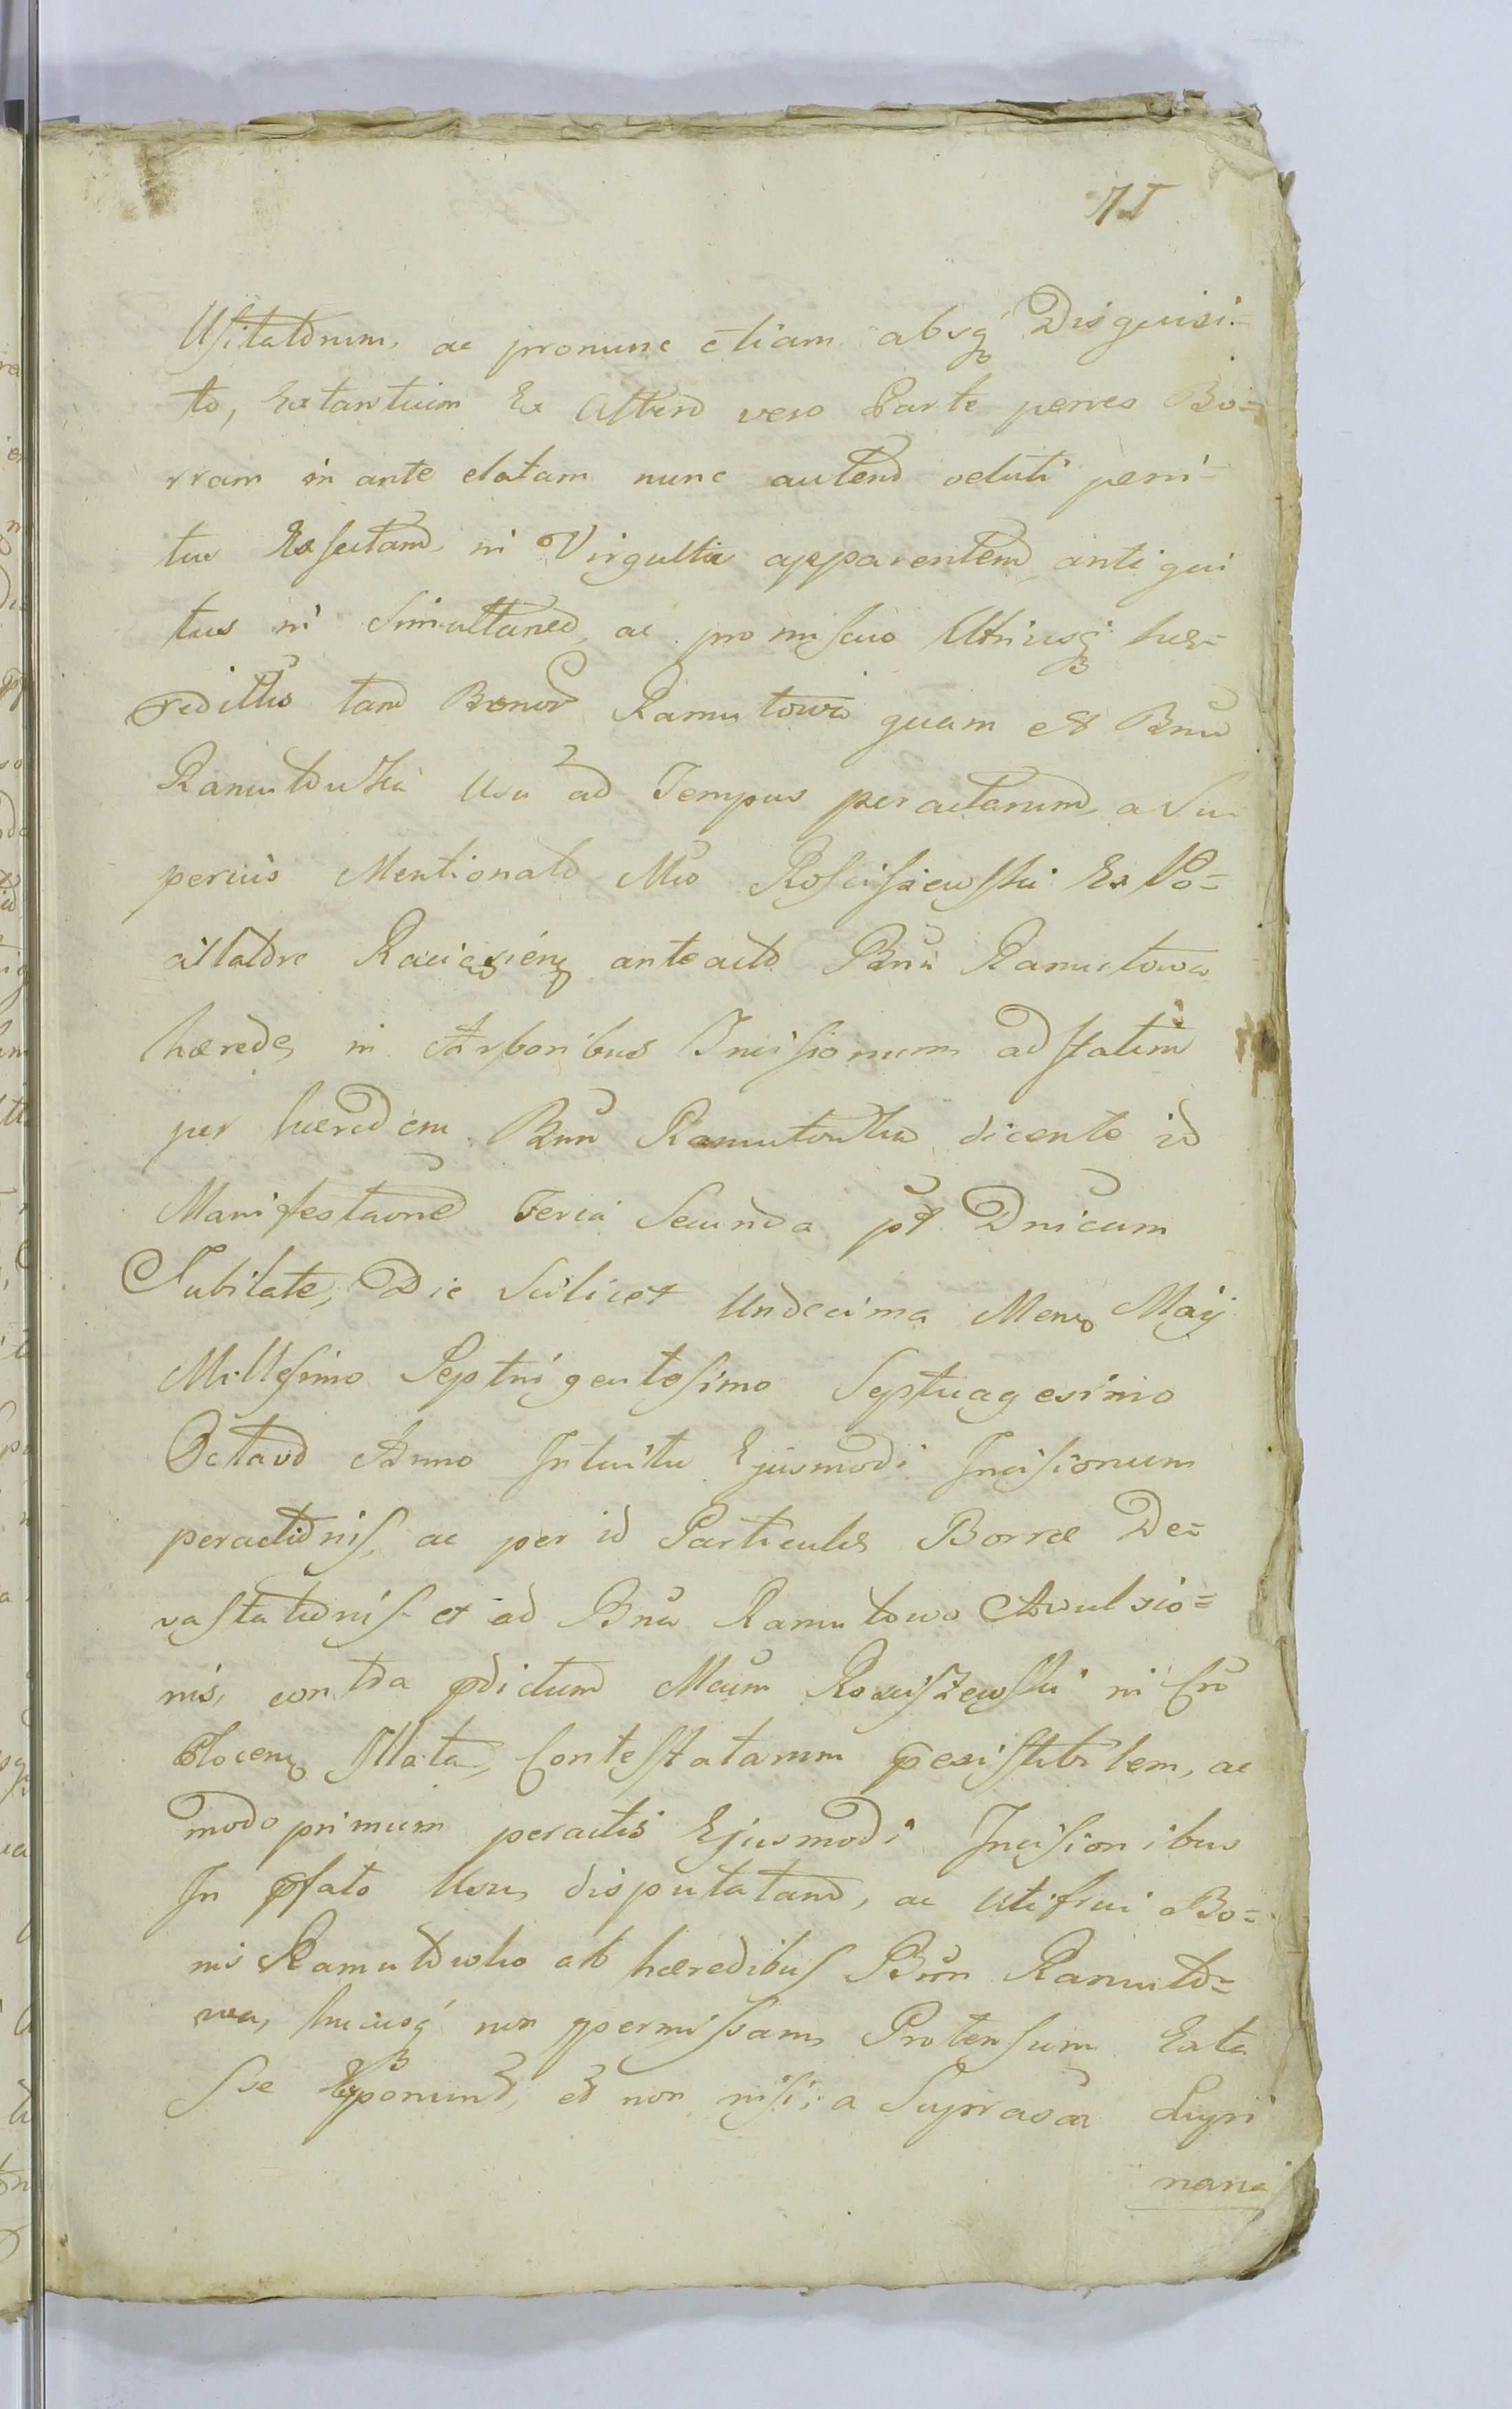 75
Usitatorum, ac pronunc etiam absq Disquisi=
to, Extantium Ex Altera vero Parte penes Bo=
rram in ante elatam nunc autem veluti peni-
tus Exsectam, in Virgultis apparentem, antiqui
tus in Simultaneo, ac promiscuo Utriusq hæ=
reditis tam Bonor Ramutowo quam et Bnŭ
Ramutowko Usu ad Tempus peractarum, a Su-
perius Mentionato Mco Rościszewski Ex Vo-
Raciążień anteacto Bnŭ Ramutowo
hærede, in Arboribus Incisionum ad statim
per hæredem Bnŭ Ramutowko dicente id
Manifestaone Feria Secunda pt Dnicam
Jubilate, Die Scilicet Undecima Mens Maij
Millesimo Septingentesimo Septuagesimo
Octavo Anno Intuitu Ejusmodi Incisionum
peractionis, ac per id Particulis Borræ De=
vastationis et ad Bnŭ Ramutowo Avulsio=
nis, contra pdictum Mcum Rosciszewski in Cro
Plocens Illata, Contestatarum, ac
modo primum peractis Ejusmodi Incisionibus
In pfato Usu, disputatam, ac utifrui Bo=
nis Ramutowko ab hæredibus Bnŭ Ramuto=
wo, hucusq non permissam, Protensum Exta
sse Exponunt, et non nisi, a Supra
naria